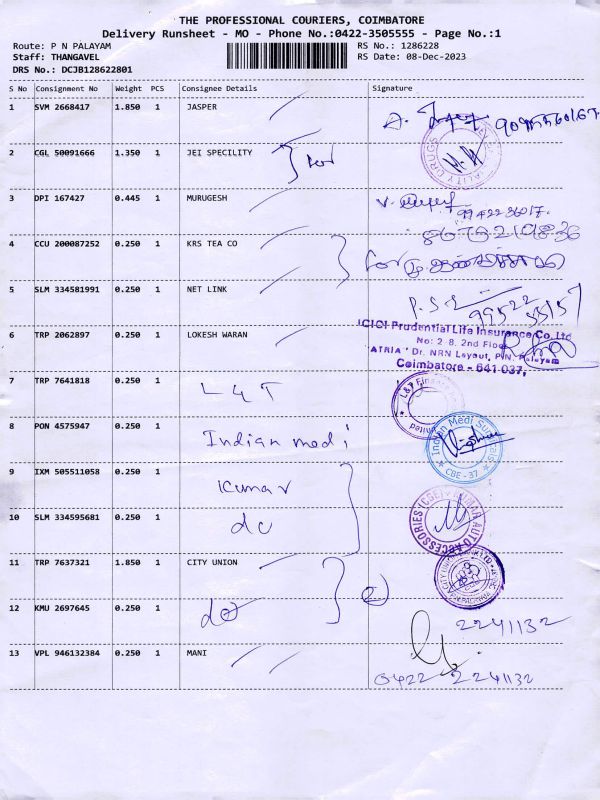 THE PROFESSIONAL COURIERS, COIMBATORE
Delivery Runsheet - MO - Phone No.:0422-3505555 - Page No.:1
Route: P N PALAYAM
RS No.: 1286228
Staff: THANGAVEL
RS Date: 08-Dec-2023
DRS No.: DCJB128622801
S No Consignment No Weight PCS Consignee Details Signature
1 SVM 2668417 1.850 1 JASPER
2 CGL 50091666 1.350 1 JEI SPECILITY
3 DPI 167427 0.445 1 MURUGESH
9942236017
8675219836
4 CCU 200087252 0.250 1 KRS TEA CO
for
5 SLM 334581991 0.250 1 NET LINK
99522 55157
ICICI Prudential Life Insurance Co. Ltd
No: 2-8, 2nd Floor
6 TRP 2062897 0.250 1 LOKESH WARAN
"ATRIA" Dr. NRN Layout, P.N. Palayam
Coimbatore - 641 037,
7 TRP 7641818 0.250 1
L & T
L&T Finance Limited
8 PON 4575947 0.250 1
Indian medi
Indian Medi Surgicals
CBE - 37
9 IXM 505511058 0.250 1
Kumar
KUMAR AUTO ACCESSORIES (CBE)
10 SLM 334595681 0.250 1
do
11 TRP 7637321 1.850 1 CITY UNION
12 KMU 2697645 0.250 1
do
2
2241132
13 VPL 946132384 0.250 1 MANI
0422 2241132